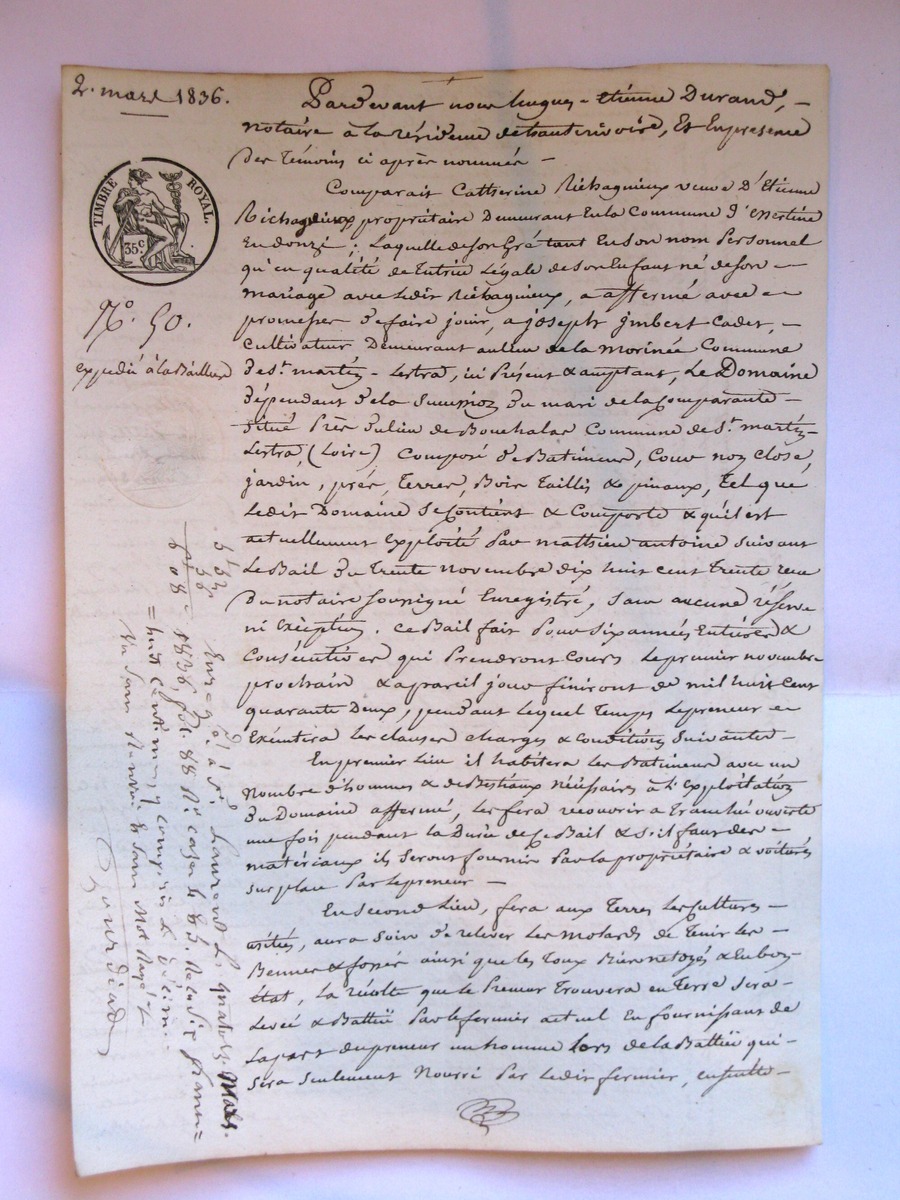 2. mars 1836.
TIMBRE ROYAL.
35c
N.° 50.
expédié à la Bailleuse
Pardevant nous hugues = etiénne Durand, -
notaire à la résidence de hauterivoire, Et En presence
Des Témoins ci après nommés -
Comparait Catherine Richagneux veuve D'Etienne
Richagneux propriétaire Demeurant En la Commune d'essertine
En donzi; Laquelle de son Gré tant En son nom Personnel
qu'en qualité de Tutrice Légale de son Enfant né de son -
mariage avec Ledit Richagneux, a affermé avec -
promesse de faire jouir, a joseph imbert Cadet, -
Cultivateur Demeurant au lieu de la morinée Commune
de St. martin - Lestrat, ici Présent & acceptant, Le Domaine
dépendant de la succession du mari de la Comparante -
situé Près du lieu de Bouchalas Commune de St. martin-
Lestra, (Loire) Composé de Batimens, Cour non Close,
jardin, prés, Terres, Bois Taillis & pinaux, Tel que
Ledit Domaine Se Contient & Comporte & qu'il est
actuellement Exploité Par mathieu antoine suivant
Le Bail du Trente novembre dix huit cent Trente reçu
Du notaire soussigné Enregistré, sans aucune réserve
ni Exception. Ce Bail fait Pour six années Entieres &
Consécutives qui Prendront Cours Le premier novembre
prochain & a pareil jour finiront de mil huit Cent
quarante Deux, pendant lequel Temps Le preneur
Exécutera les clauses charges & conditions suivantes -
En premier Lieu il habitera les Batimens avec un
Nombre d'hommes & de Bestiaux Nécéssaires à L'Exploitation
Du Domaine affermé, les fera recouvrir a Tranché ouverte
une fois pendant la Durée de Ce Bail & s'il faut des -
matériaux ils Seront fournis Par la propriétaire & voiturés
sur place Par Le preneur -
En Second Lieu, fera aux Terres Les Cultures -
usitées, aura soin de relever Les motards de Tenir les -
Bennes & fossés ainsi que les Toux Bien netoyés & En bon
état, La récolte que le Preneur Trouvera en Terre sera -
Levée & Battue Par le fermier actuel En fournissant de
La part du preneur un homme lors de la Battue qui -
sera seulement Nourri Par Ledit fermier, ensuite -
Enr = g. à St. Laurent Le quatorze Mars.
1836, fol. 88 Ro. cases
huit centimes, y compris le décime.